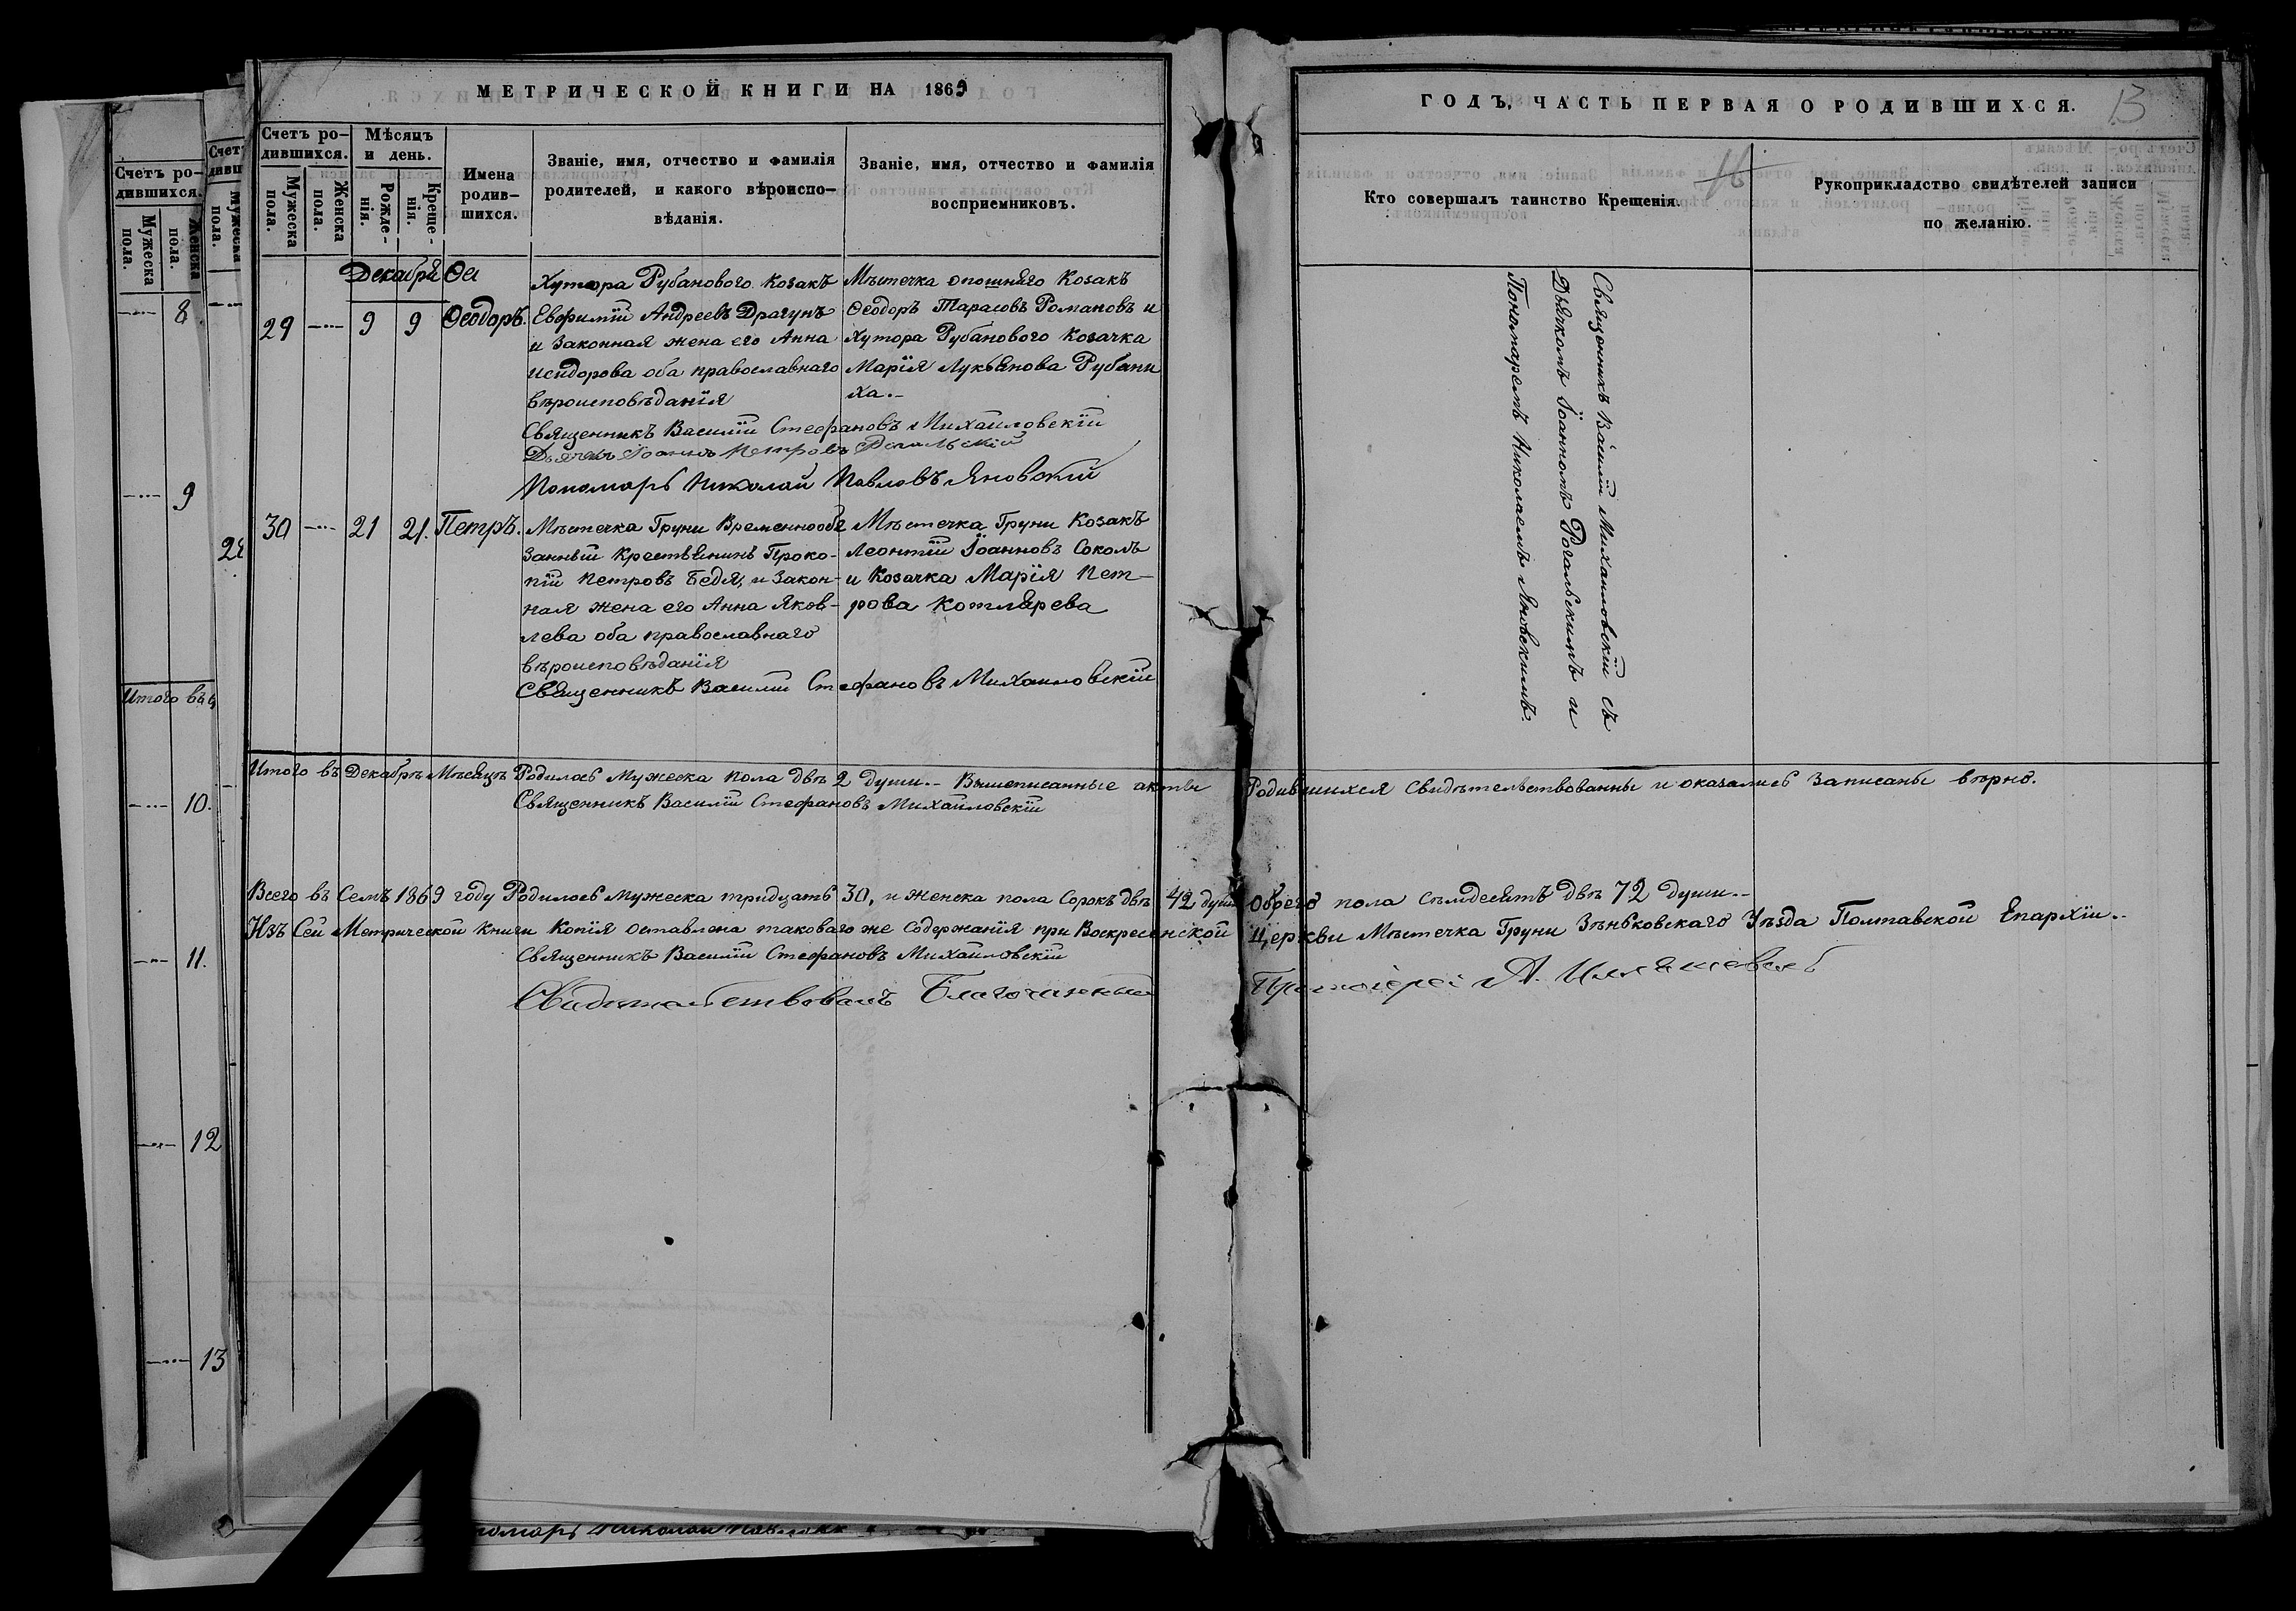 МЕТРИЧЕСКОЙ КНИГИ НА 1869
Счетъ ро-
дившихся.
Мужеска
пола.
Женска
пола.
Мѣсяцъ
и день.
Рожде-
нія.
Креще-
нія.
Имена
родив-
шихся.
Званіе, имя, отчество и фамилія
родителей, и какого вѣроиспо-
вѣданія.
Званіе, имя, отчество и фамилія
восприемниковъ.
Декабря
29 9 9 Ѳеодоръ.
Хутора Рубанового Козакъ
Евфимій Андреевъ Драгунъ
и Законная жена его Анна
Исидорова оба православнаго
вѣроисповѣданія
Мѣстечка Опошняго Козакъ
Ѳеодоръ Тарасовъ Романовъ и
Хутора Рубанового Козачка
Марія Лукьянова Рубани
ха.
Священникъ Василій Стефановъ Михайловскій
Дьячекъ Іоаннъ Петровъ Рогальскій
Пономарь Николай Павловъ Яновскій
30 21 21. Петръ.
Мѣстечка Груни Временнообя
занный Крестьянинъ Проко-
пій Петровъ Бедя, и Закон-
ная жена его Анна Яков-
лева оба православнаго
вѣроисповѣданія
Мѣстечка Груни Козакъ
Леонтій Іоанновъ Соколъ
и Козачка Марія Пет-
рова Котлярева
Священникъ Василій Стефановъ Михайловскій
Итого въ Декабрѣ Мѣсяцѣ Родилось Мужеска пола двѣ 2 души. Вышеписанные акты Родившихся Свидѣтельствованны и оказались Записаны вѣрно.
Священникъ Василій Стефановъ Михайловскій
Всего въ Семъ 1869 году Родилось Мужеска тридцать 30, и Женска пола Сорокъ двѣ 42 души Обоего пола Семдесятъ двѣ 72 души.
Изъ Сей Метрической Книги Копія Оставлена таковаго же Содержанія при Воскресенской Церкви Мѣстечка Груни Зѣньковскаго Уѣзда Полтавской Епархіи.
Священникъ Василій Стефановъ Михайловскій
Свидѣтельствовалъ Благочинный Протоіерей А.
ГОДЪ, ЧАСТЬ ПЕРВАЯ О РОДИВШИХСЯ.
13
16
Кто совершалъ таинство Крещенія.
Рукоприкладство свидѣтелей записи
по желанію.
Священникъ Василій Михайловскій съ
Дьячкомъ Іоанномъ Рогальскимъ и
Пономаремъ Николаемъ Яновскимъ.
Счетъ ро-
дившихся.
Мужеска
пола.
Женска
пола.
8
9
Итого въ
10.
11.
12
13
Счетъ
Мужеска
пола.